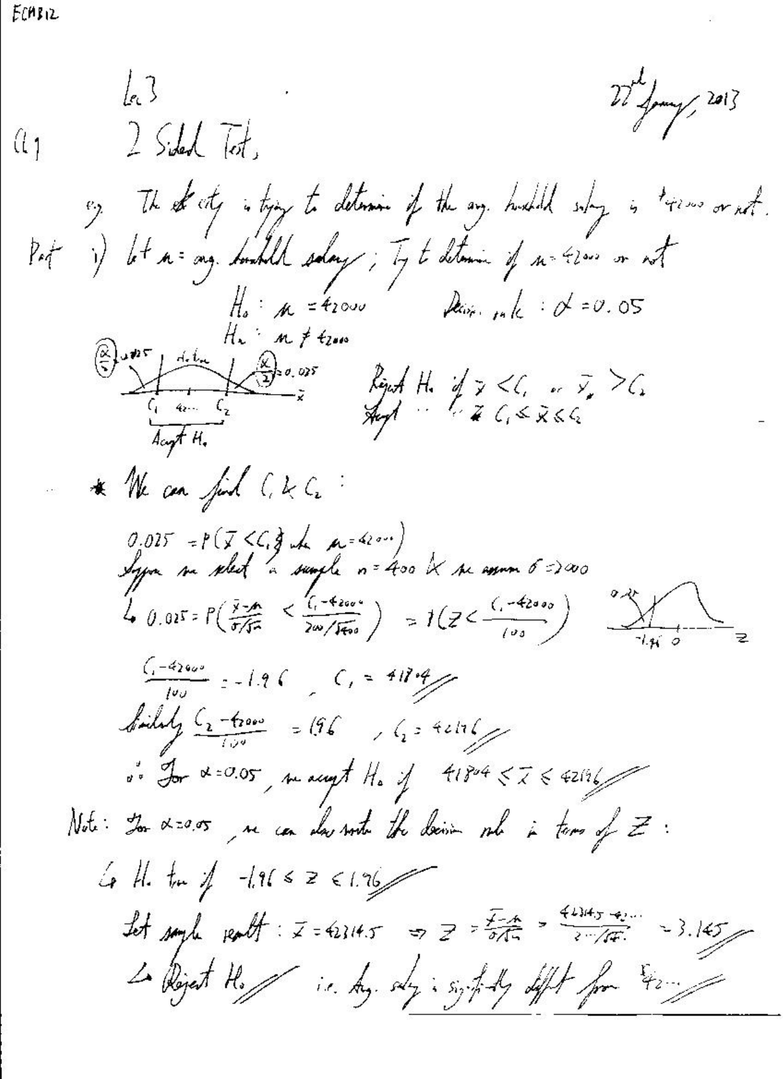 ECMB12
Lec 3
22nd January, 2013
Ch 9 2 Sided Test,
eg. The city is trying to determine if the avg. household salary is $42000 or not.
Part i) Let μ = avg. household salary; Try to determine if μ = 42000 or not
H₀ : μ = 42000 Decision rule : α = 0.05
Hₐ : μ ≠ 42000
α/2 = 0.025 H₀ true α/2 = 0.025
C₁ 42... C₂ x̄
Accept H₀
Reject H₀ if x̄ < C₁ or x̄ > C₂
Accept " " C₁ ≤ x̄ ≤ C₂
* We can find C₁ & C₂ :
0.025 = P(x̄ < C₁ when μ = 42000)
Suppose we select a sample n = 400 & we assume σ = 2000
↳ 0.025 = P( (x̄-μ)/(σ/√n) < (C₁-42000)/(200/√400) ) = P(Z < (C₁-42000)/100 )
0.025
-1.96 0 Z
(C₁-42000)/100 = -1.96 , C₁ = 41804
Similarly (C₂-42000)/100 = 1.96 , C₂ = 42196
∴ For α = 0.05, we accept H₀ if 41804 ≤ x̄ ≤ 42196
Note: For α = 0.05, we can also write the decision rule in terms of Z :
↳ H₀ true if -1.96 ≤ Z ≤ 1.96
Let sample result : x̄ = 42314.5 ⇒ Z = (x̄-μ)/(σ/√n) = (42314.5-42...)/(2.../√4..) = 3.145
↳ Reject H₀ i.e. Avg. salary is significantly different from $42...